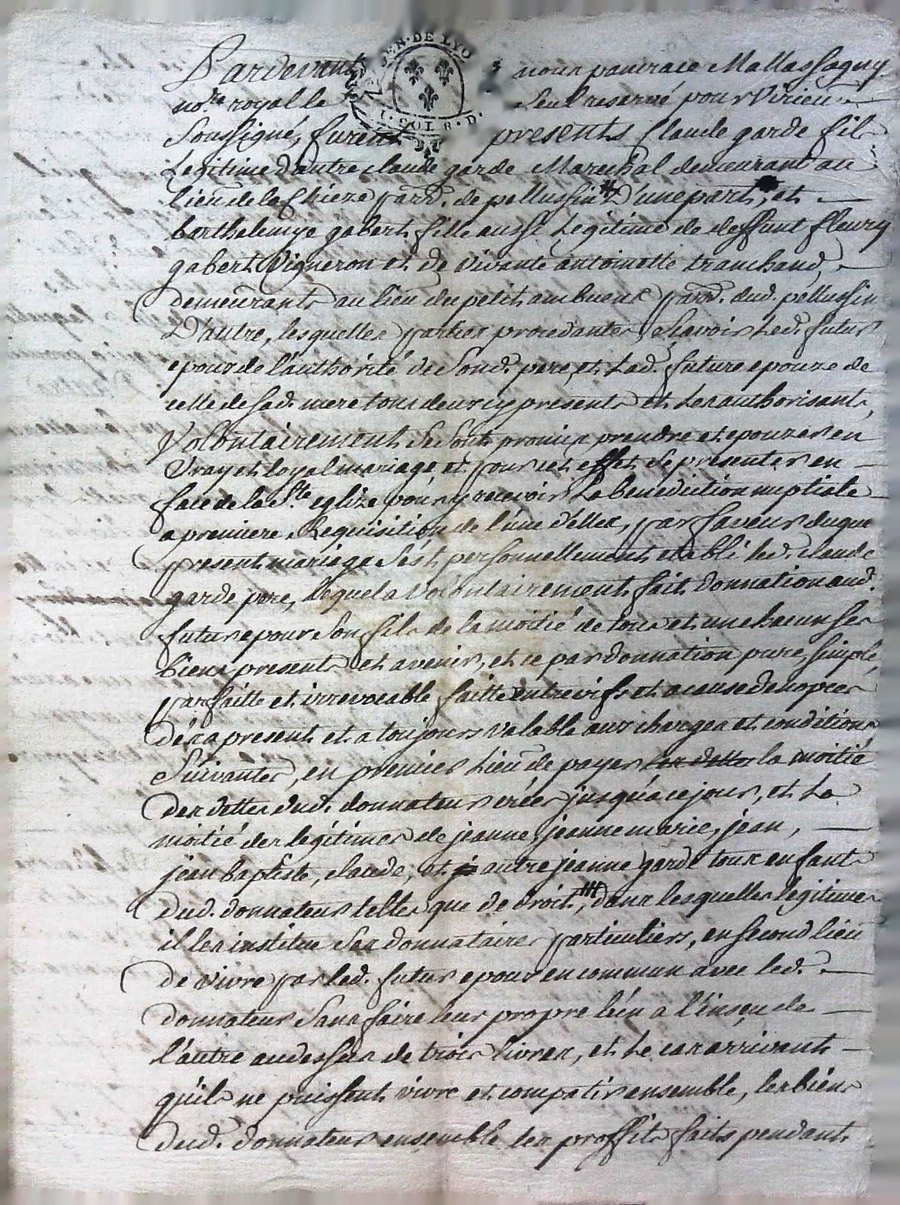 GEN. DE LYO
1. SOL 8. D.
Pardevant nous pancrace Mallassagny
no.re royal le seul reservé pour Virieu
Soussigné, furent presents Claude garde fils
Legitime d'autre claude garde Marechal demeurant au
lieu de la Chieze parr. de pellussin d'une part, et
barthelemye gabert fille aussi Legitime de deffunt fleury
gabert Vigneron et de vivante antoinette tranchand,
demeurants au lieu du petit ambuent parr. dud. pellussin
D'autre, lesquelles parties procedantes sçavoir Led. futur
epoux de l'authorité de Sond. pere, et Lad. future epouze de
celle de Sad. mere tous deux cy presents et Les authorisants,
Volontairement Se sont promis prendre et epouzer en
Vray et loyal mariage et pour cet effet Se presenter en
face de la S.te eglize pour y recevoir La benediction nuptiale
a premiere Requisition de l'une d'elles, par faveur duque
present mariage S'est personnellement etabli led. claude
garde pere, lequel a Volontairement fait donnation aud.
futur epoux Son fils de la moitié de tous et un chacun Ses
biens presents et avenir, et ce par donnation pure, simple,
parfaitte et irrevocable faitte entre vifs et a cause de nopces
dés a present et a toujours valable aux charges et conditions
Suivantes, en premier Lieu de payer ses dettes la moitié
des dettes dud. donnateur crées jusqu'a ce jour, et La
moitié des legitimes de jeanne, jeanne marie, jean,
jean baptiste, claude, et autre jeanne garde tous enfants
dud. donnateur telles que de droit, dans lesquelles legitimes
il les institue Ses donnataires particuliers, en second lieu
de vivre par led. futur epoux en commun avec led.
donnateur Sans faire leur propre l'un a l'insçu de
l'autre au dessus de trois livres, et Le cas arrivant
qu'ils ne puissent vivre et compatir ensemble, les biens
dud. donnateur ensemble les proffits faits pendant